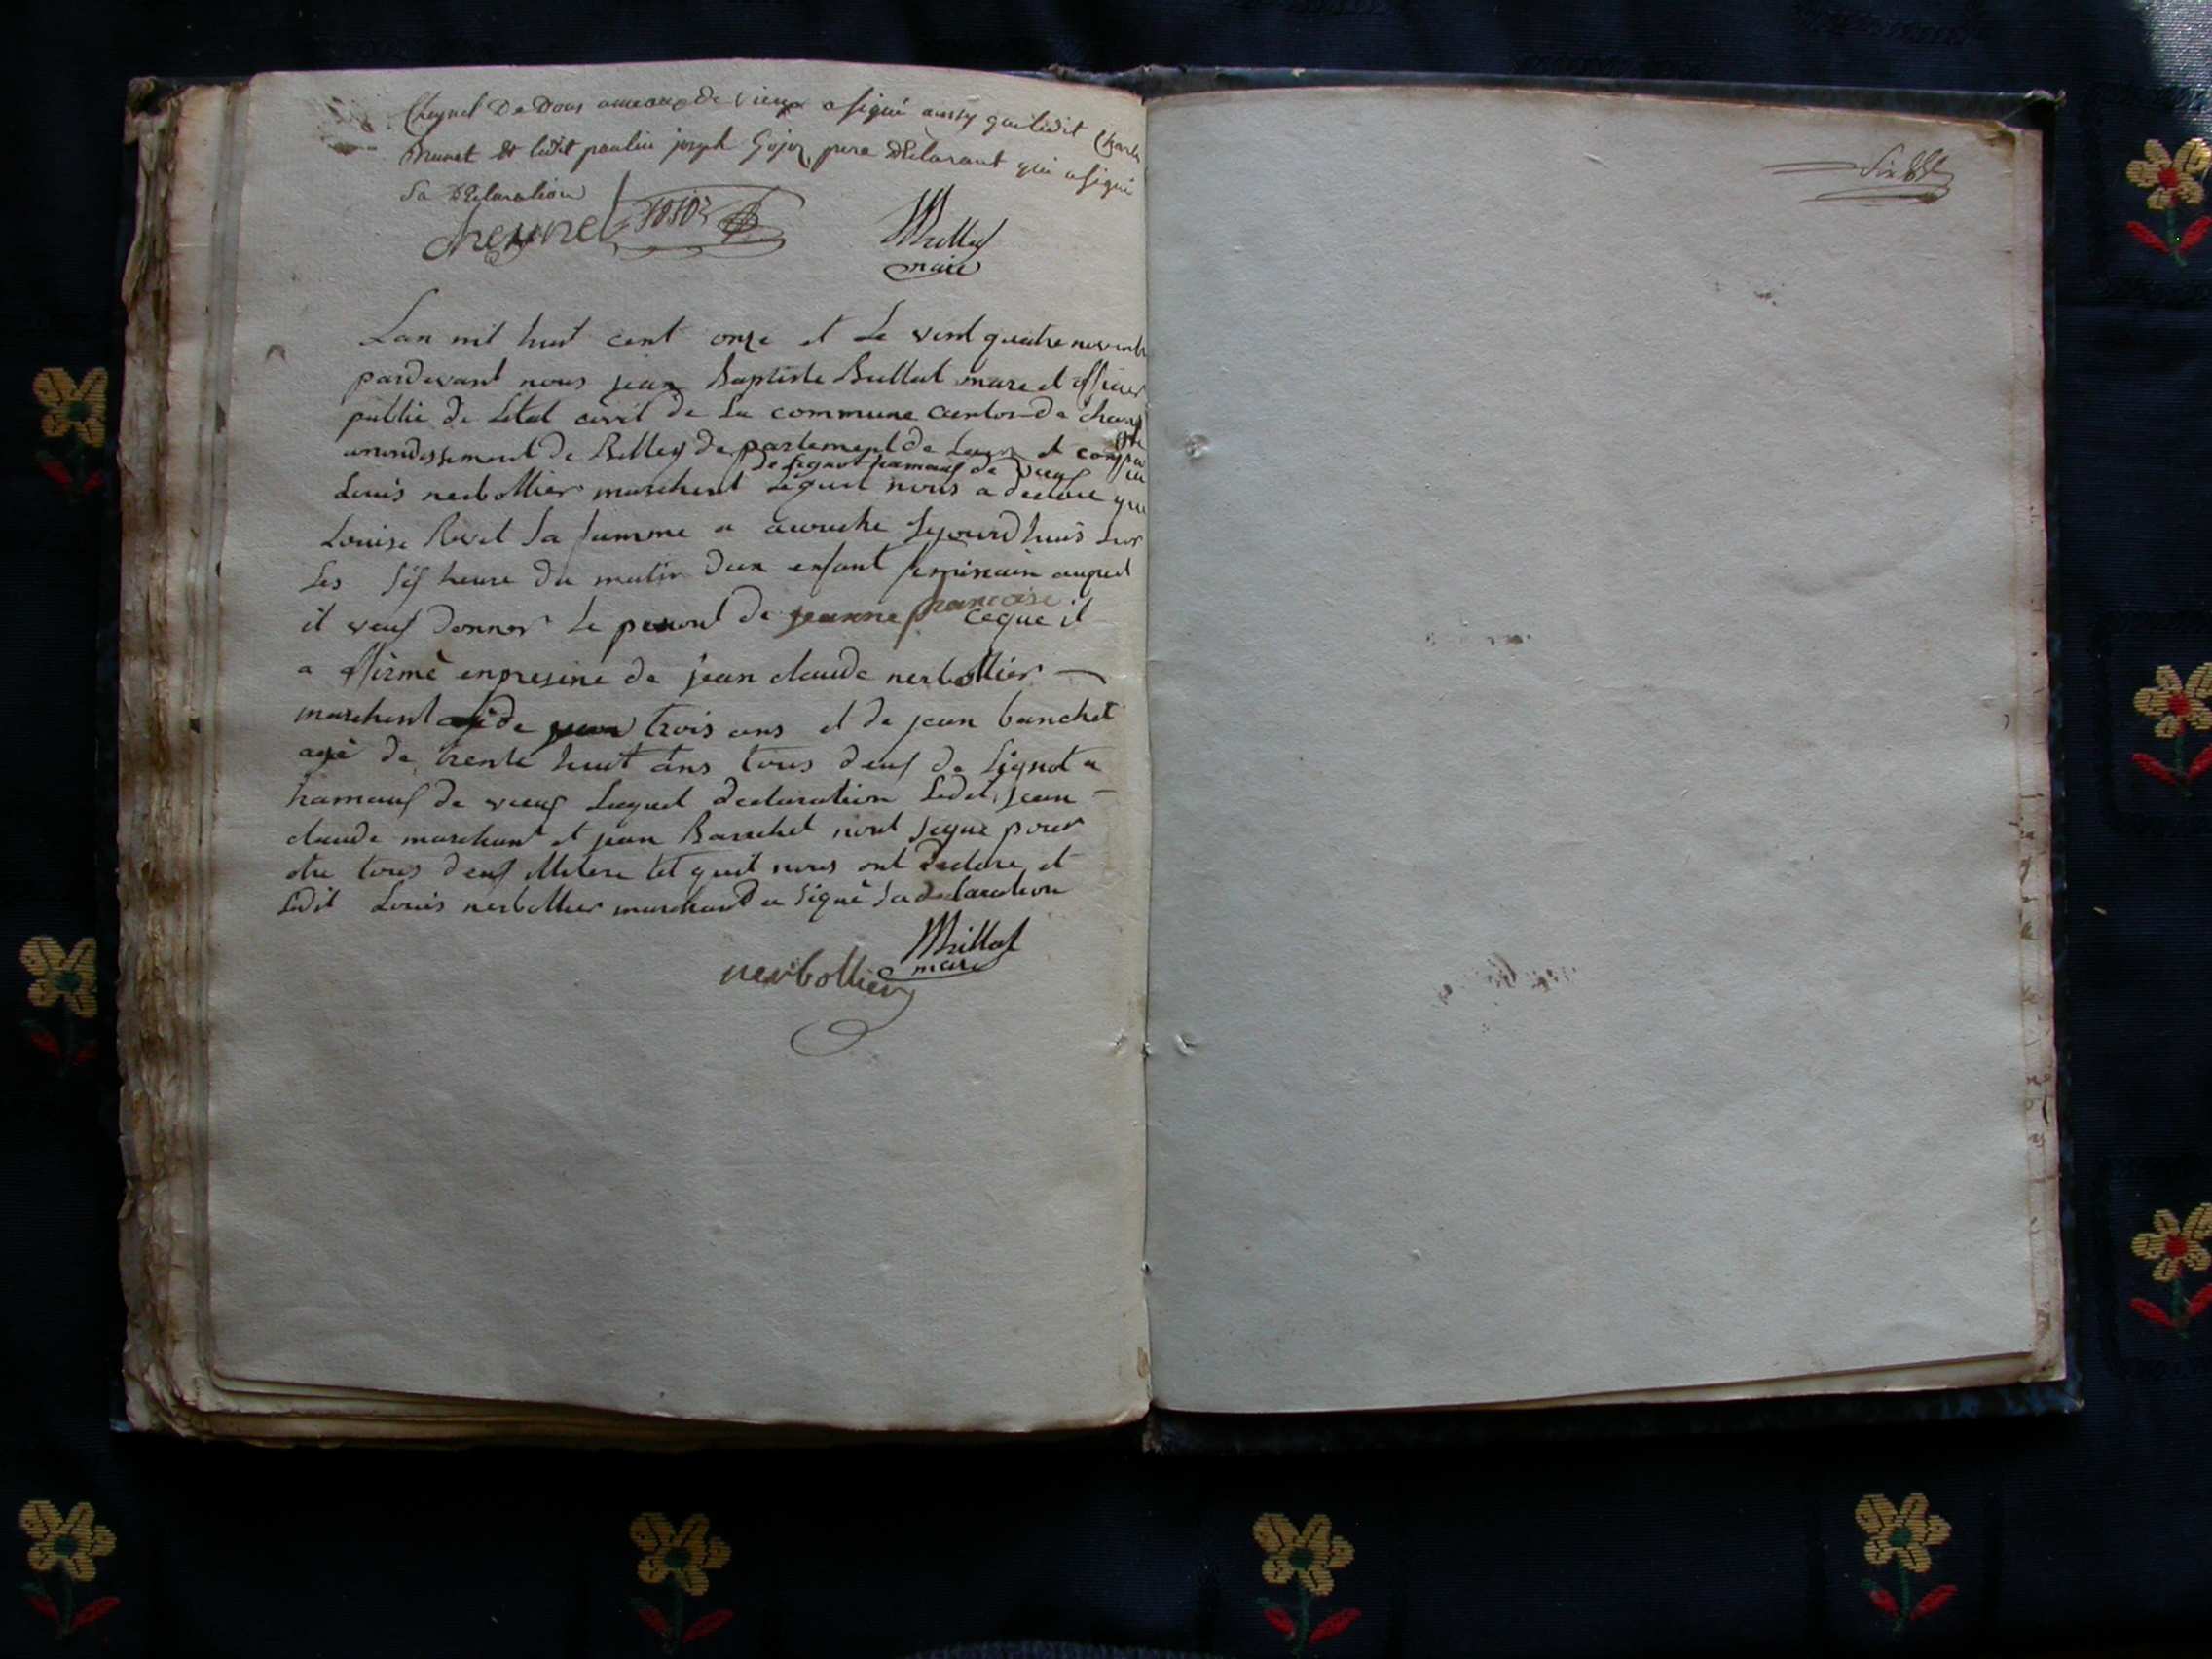 Cheynel De Dons ameaux de vieux a signé aussy que ledit Charles
Munet et ledit paulin joseph Gojoz pere declarant qui a signé
Sa Declaration
cheynel Gojoz
maire
Lan mil huit cent onze et le vint quatre novembre
pardevant nous jean Baptiste Brillat mare et officier
public de letat civil de la commune canton de
arrondissement de Belley departement de et
de lignot hamauf de vieuf
Louis nerbollier marchent lequel nous a declare que
Louise Revel Sa famme a acouche lejourdhuis sur
les sif heure du matin dun enfant feminain auquel
il veuf donner le penont de jeanne francoise ceque il
a affirmé enpresene de jean claude nerbollier
marchent de trois ans et de jean banchet
agé de trente huit ans tous deuf de Lignot a
hamauf de vieuf laquel declaration ledit jean
claude marchant et jean Banchet nont signe pour
etre tous deuf illetere tel quil nous ont declare et
ledit Louis nerbollier marchand a signé sa declaration
nerbollier Brillat
mare